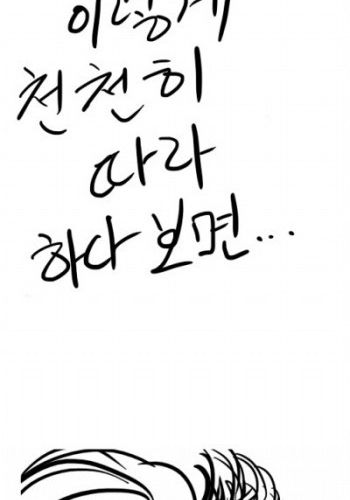 이렇게
천천히
따라
하다 보면...